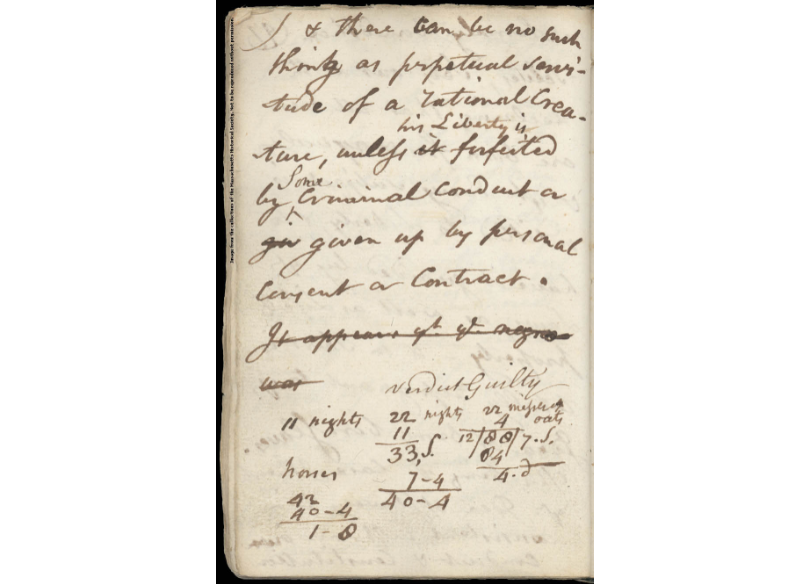 & there can be no such
thing as perpetual servi-
tude of a rational Crea-
his Liberty is
ture, unless it forfeited
Some
by Criminal Conduct or
giv given up by personal
Consent or Contract.
It appears yt. ye. negro
was
verdict Guilty
11 nights 22 nights 22 of oats
11 4
33,S. 12/88/7.S.
84
horses 7-4 4.d
42 40-4
40-4
1-8
Image from the collections of the Massachusetts Historical Society, not to be reproduced without permission.